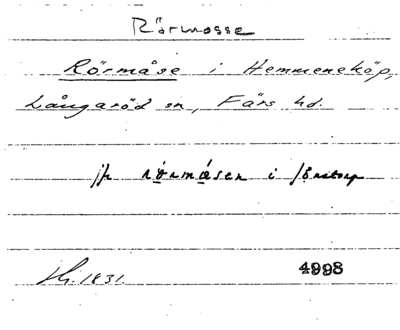 Rörmosse
Rörmåse i Hemmeneköp,
Långaröd sn, Färs hd.
jfr rörmåsen i
Hg. 1831.
4998